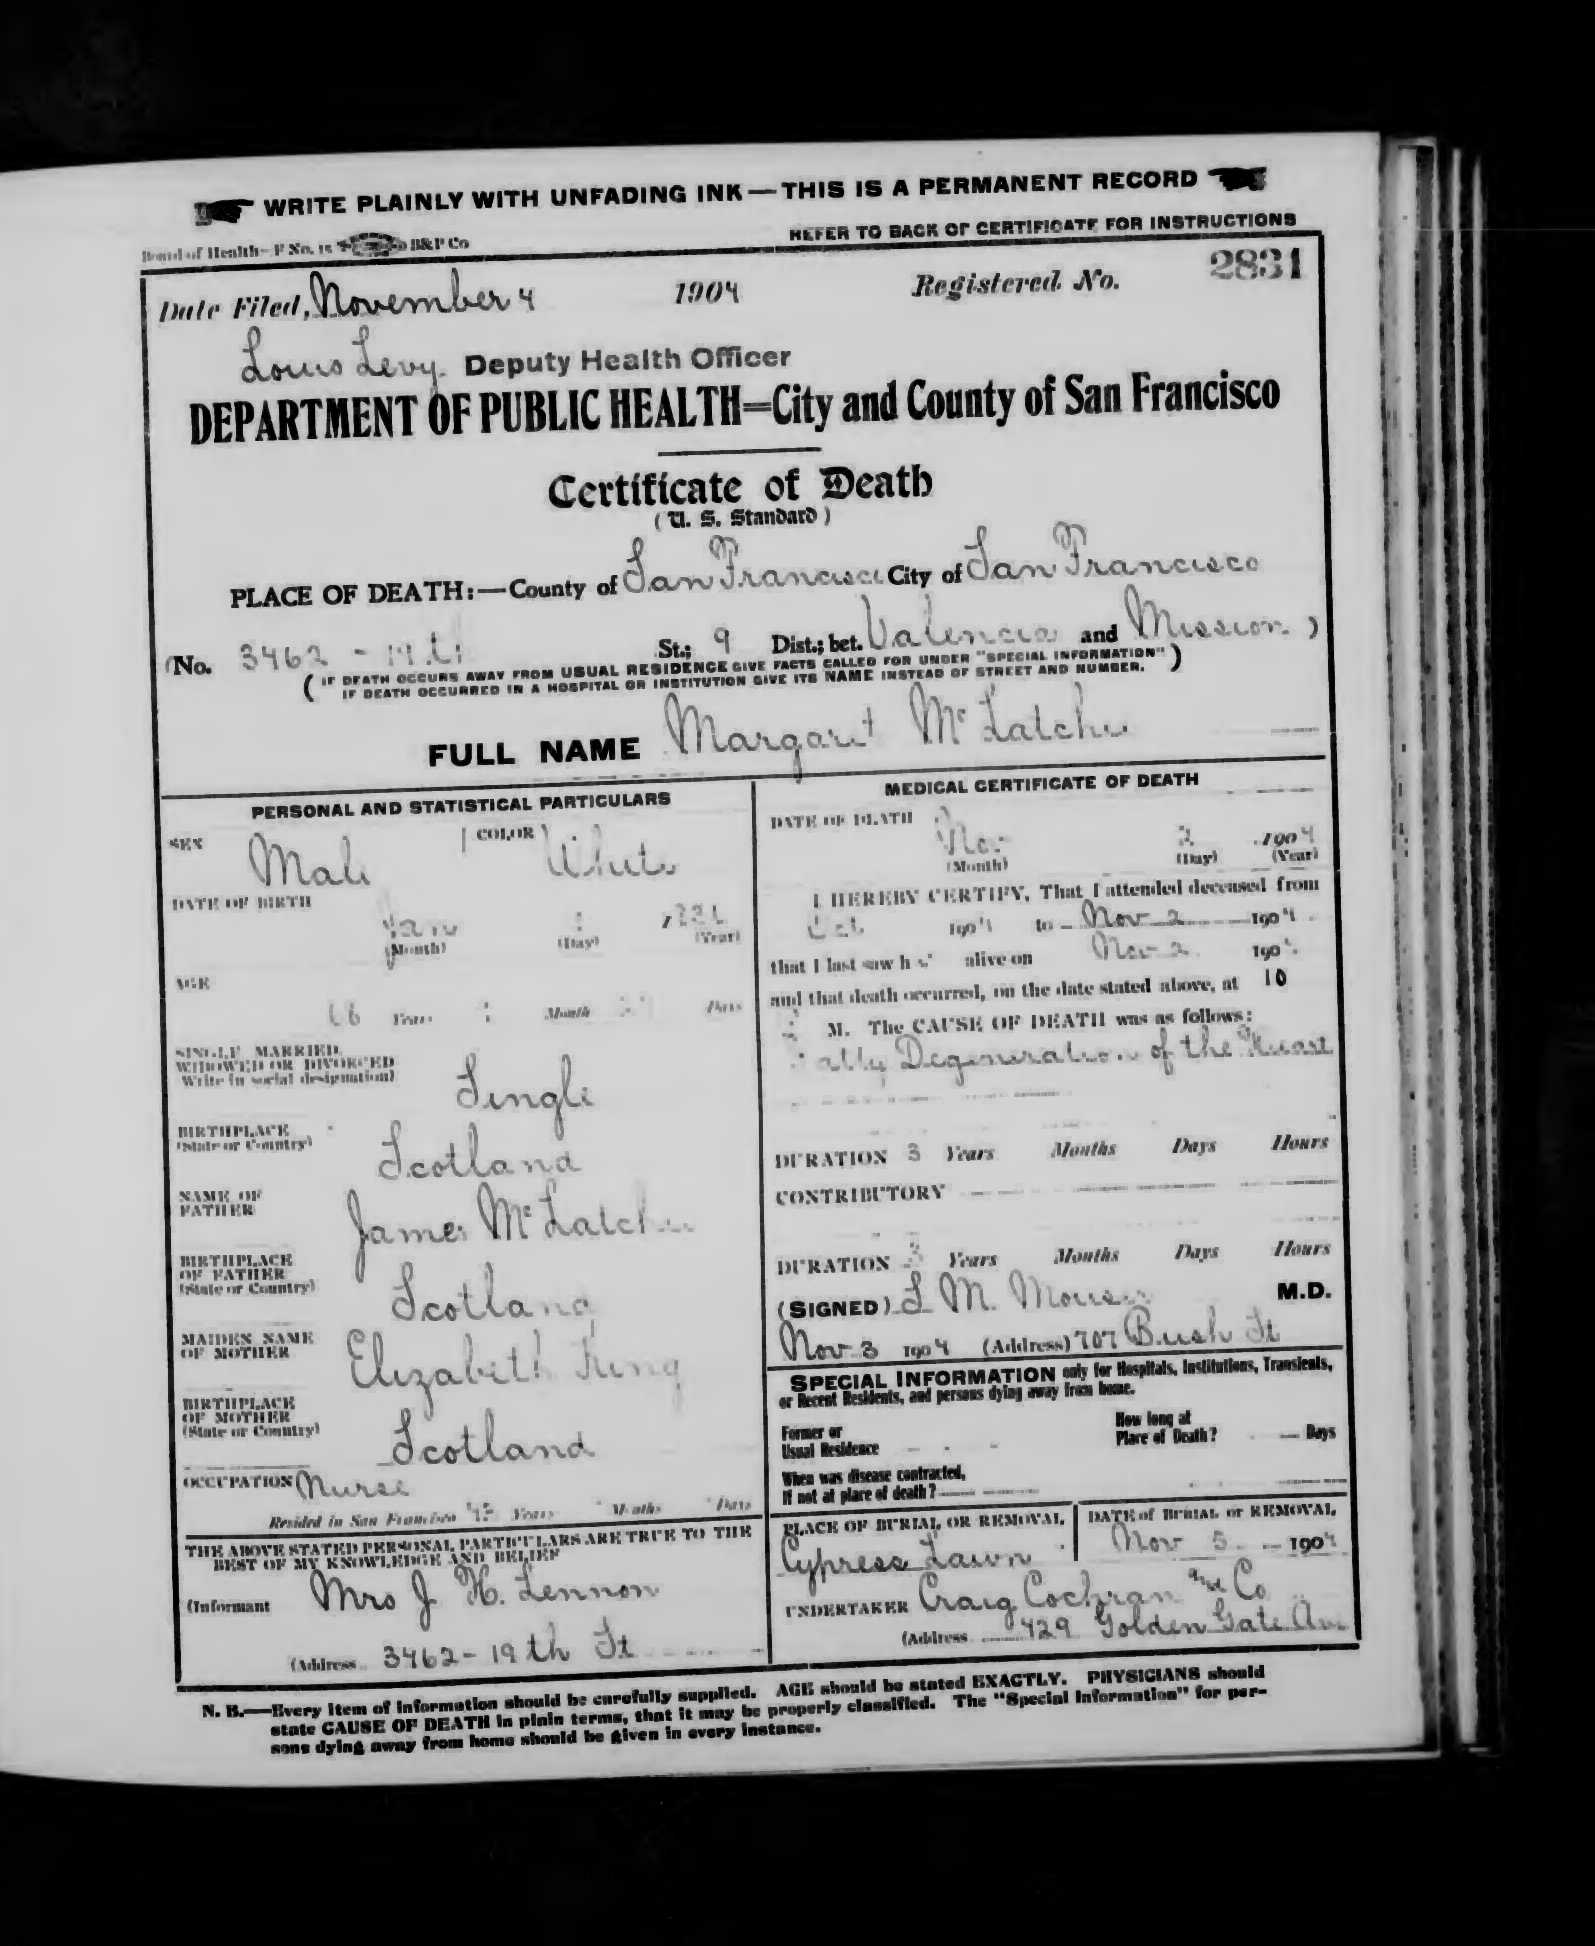 WRITE PLAINLY WITH UNFADING INK — THIS IS A PERMANENT RECORD
Board of Health—F No. 15 B&P Co
REFER TO BACK OF CERTIFICATE FOR INSTRUCTIONS
Date Filed, November 4 1904 Registered No. 2831
Louis Levy Deputy Health Officer
DEPARTMENT OF PUBLIC HEALTH=City and County of San Francisco
Certificate of Death
(U. S. Standard)
PLACE OF DEATH:—County of San Francisco City of San Francisco
(No. 3462 - 19 th St.; 9 Dist.; bet. Valencia and Mission )
(IF DEATH OCCURS AWAY FROM USUAL RESIDENCE GIVE FACTS CALLED FOR UNDER "SPECIAL INFORMATION"
IF DEATH OCCURRED IN A HOSPITAL OR INSTITUTION GIVE ITS NAME INSTEAD OF STREET AND NUMBER.)
FULL NAME Margaret Mc Latchie
PERSONAL AND STATISTICAL PARTICULARS
SEX Male COLOR White
DATE OF BIRTH
Jan
(Month) (Day) (Year)
AGE
Years Month Days
SINGLE MARRIED,
WIDOWED OR DIVORCED
Write in social designation)
Single
BIRTHPLACE
(State or Country)
Scotland
NAME OF
FATHER
James Mc Latchie
BIRTHPLACE
OF FATHER
(State or Country)
Scotland
MAIDEN NAME
OF MOTHER
Elizabeth
BIRTHPLACE
OF MOTHER
(State or Country)
Scotland
OCCUPATION Nurse
Resided in San Francisco Years Months Days
THE ABOVE STATED PERSONAL PARTICULARS ARE TRUE TO THE
BEST OF MY KNOWLEDGE AND BELIEF
(Informant Mrs J. H. Lennon
(Address 3462 - 19 th St
MEDICAL CERTIFICATE OF DEATH
DATE OF DEATH
Nov 2 1904
(Month) (Day) (Year)
I HEREBY CERTIFY, That I attended deceased from
Oct 1904 to Nov 2 1904
that I last saw h alive on Nov 2 1904
and that death occurred, on the date stated above, at 10
M. The CAUSE OF DEATH was as follows:
Fatty Degeneration of the Heart
DURATION 3 Years Months Days Hours
CONTRIBUTORY
DURATION 3 Years Months Days Hours
(SIGNED) S M. Mouser M.D.
Nov 3 1904 (Address) 707 Bush St
SPECIAL INFORMATION only for Hospitals, Institutions, Transients,
or Recent Residents, and persons dying away from home.
Former or
Usual Residence
How long at
Place of Death? Days
When was disease contracted,
If not at place of death?
PLACE OF BURIAL OR REMOVAL
Cypress Lawn
DATE of BURIAL or REMOVAL
Nov 5 1904
UNDERTAKER Craig Cochran and Co
(Address 429 Golden Gate Ave
N. B.—Every item of information should be carefully supplied. AGE should be stated EXACTLY. PHYSICIANS should
state CAUSE OF DEATH in plain terms, that it may be properly classified. The "Special Information" for per-
sons dying away from home should be given in every instance.